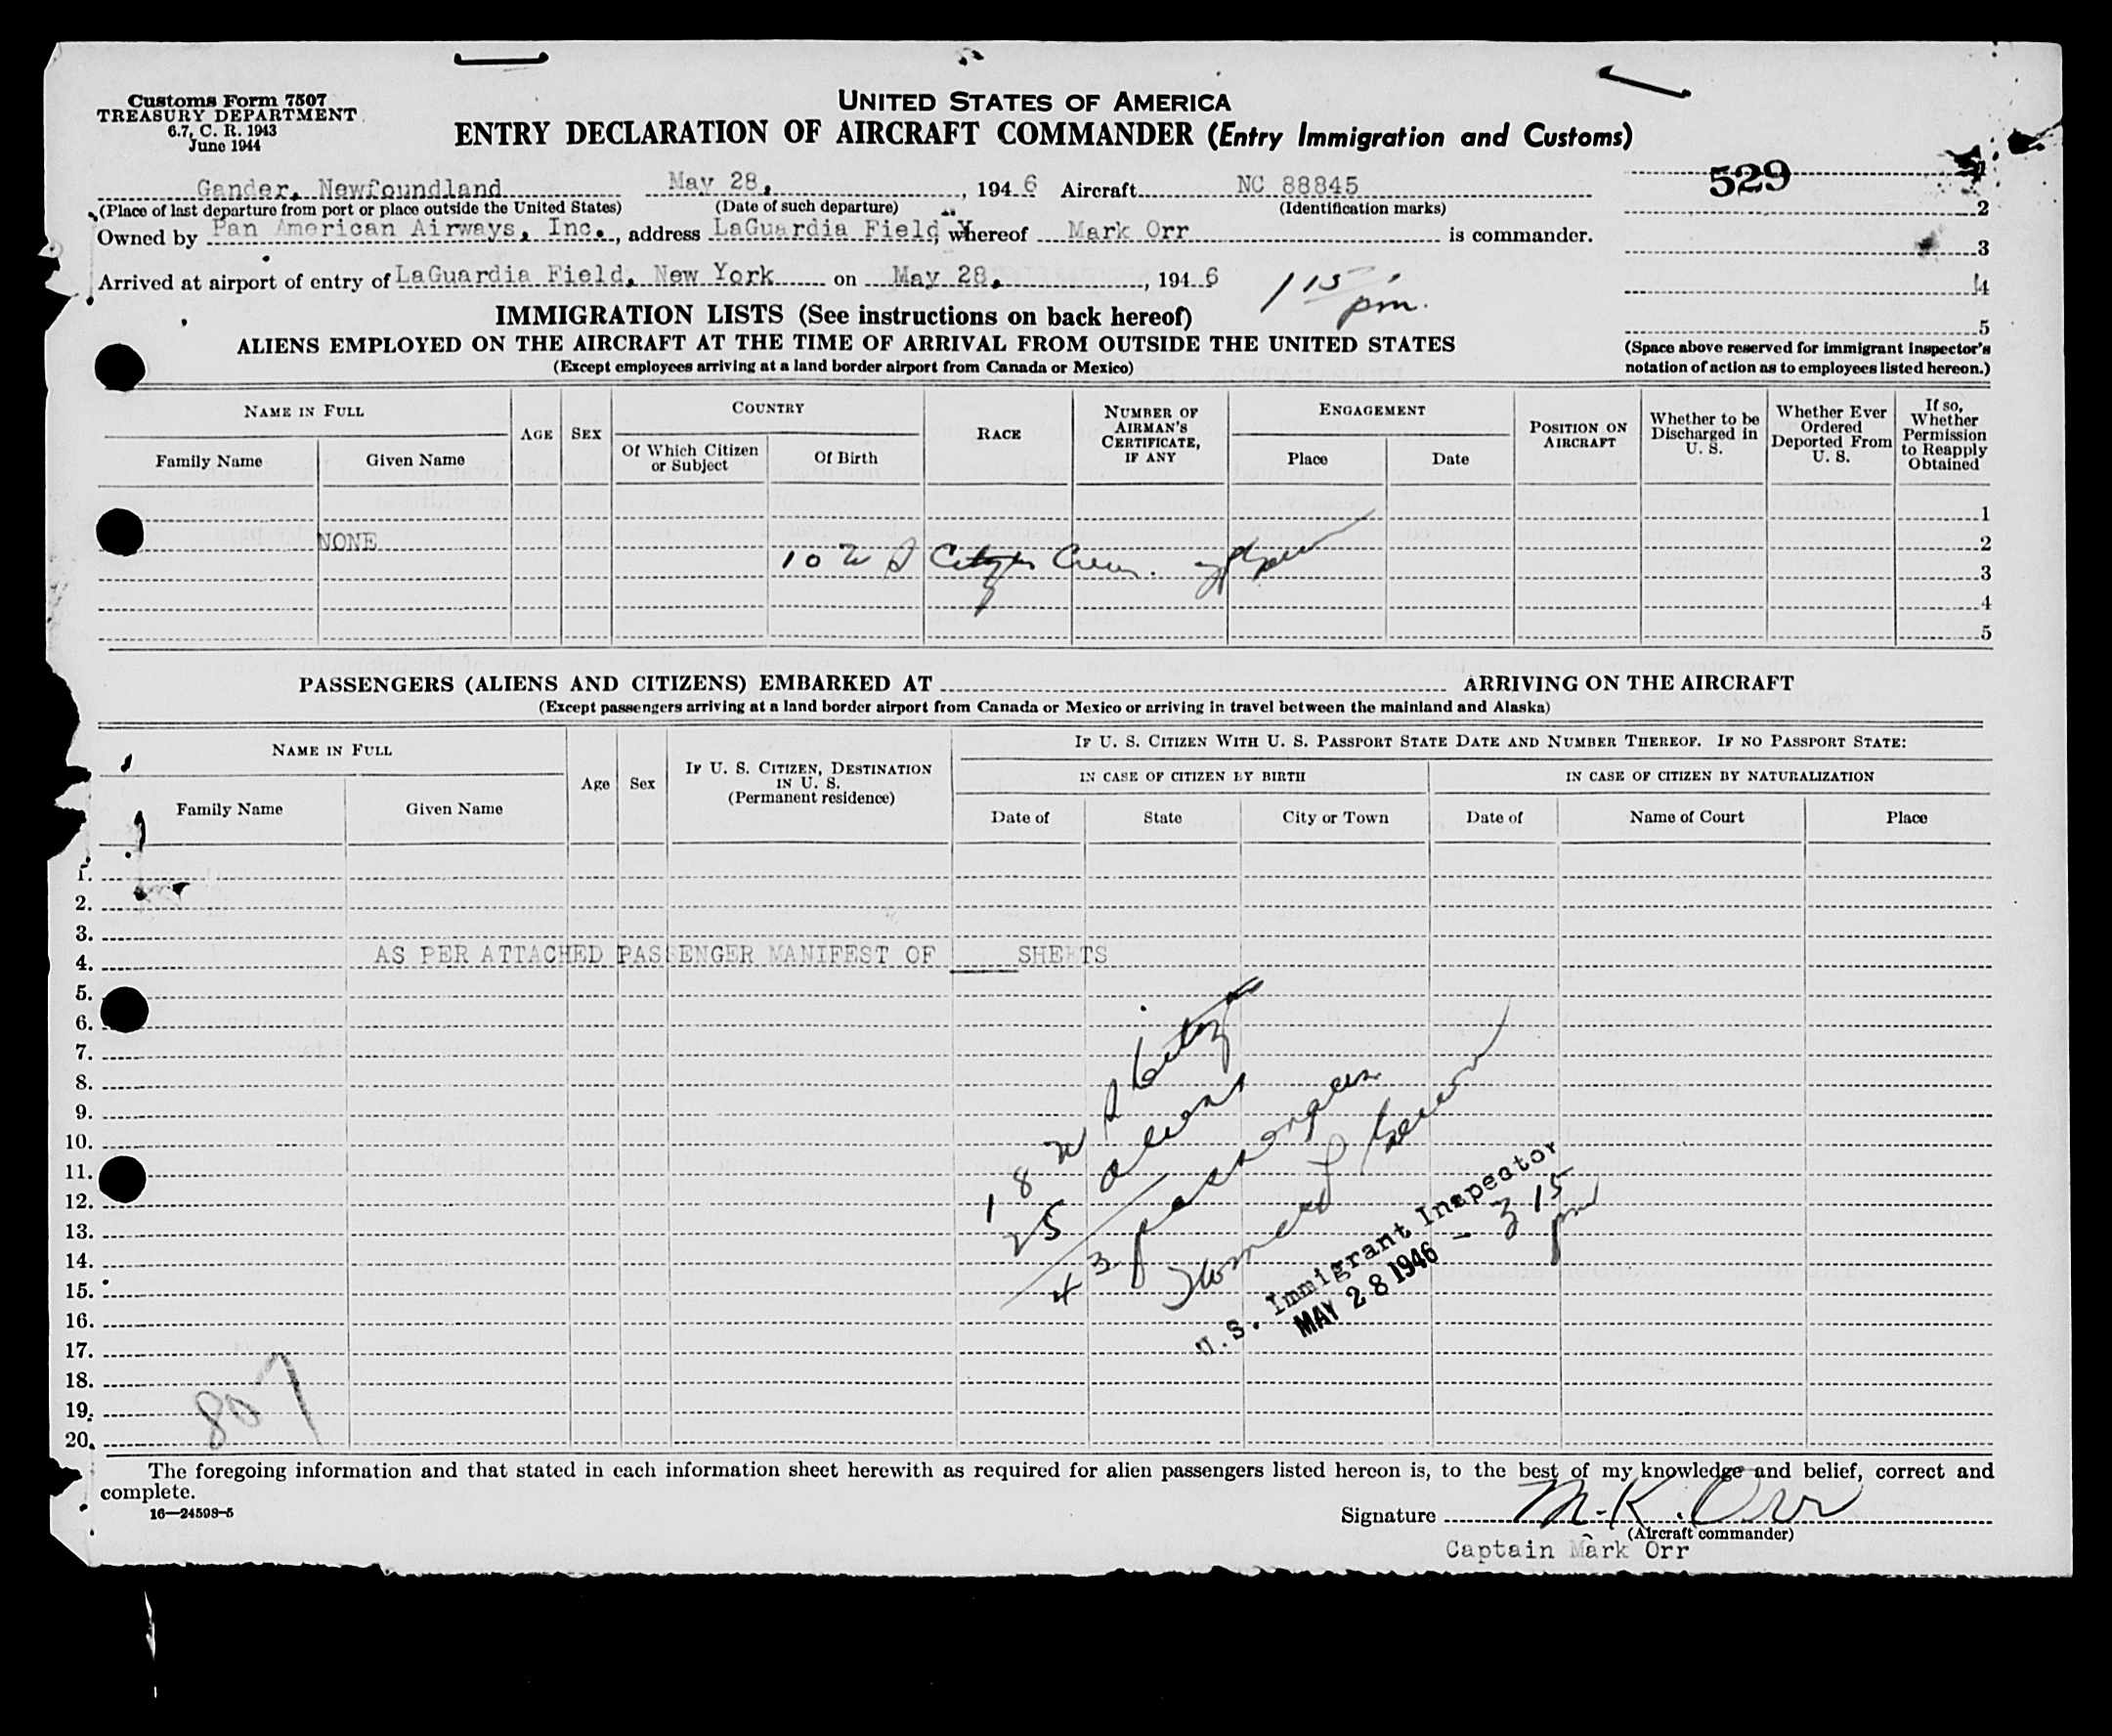 Customs Form 7507
TREASURY DEPARTMENT
6.7, C. R. 1943
June 1944
UNITED STATES OF AMERICA
ENTRY DECLARATION OF AIRCRAFT COMMANDER (Entry Immigration and Customs)
529
Gander, Newfoundland May 28, 1946 Aircraft NC 88845
(Place of last departure from port or place outside the United States) (Date of such departure) (Identification marks)
Owned by Pan American Airways, Inc., address LaGuardia Field whereof Mark Orr is commander.
Arrived at airport of entry of LaGuardia Field, New York on May 28, 1946 1 15 pm.
1
2
3
4
5
(Space above reserved for immigrant inspector's notation of action as to employees listed hereon.)
IMMIGRATION LISTS (See instructions on back hereof)
ALIENS EMPLOYED ON THE AIRCRAFT AT THE TIME OF ARRIVAL FROM OUTSIDE THE UNITED STATES
(Except employees arriving at a land border airport from Canada or Mexico)
NAME IN FULL
Family Name Given Name
AGE SEX
COUNTRY
Of Which Citizen or Subject Of Birth
RACE
NUMBER OF AIRMAN'S CERTIFICATE, IF ANY
ENGAGEMENT
Place Date
POSITION ON AIRCRAFT
Whether to be Discharged in U. S.
Whether Ever Ordered Deported From U. S.
If so, Whether Permission to Reapply Obtained
1
NONE 2
10 U S Citizen Crew. 3
4
5
PASSENGERS (ALIENS AND CITIZENS) EMBARKED AT ARRIVING ON THE AIRCRAFT
(Except passengers arriving at a land border airport from Canada or Mexico or arriving in travel between the mainland and Alaska)
NAME IN FULL
Family Name Given Name
Age Sex
IF U. S. CITIZEN, DESTINATION IN U. S. (Permanent residence)
IF U. S. CITIZEN WITH U. S. PASSPORT STATE DATE AND NUMBER THEREOF. IF NO PASSPORT STATE:
IN CASE OF CITIZEN BY BIRTH IN CASE OF CITIZEN BY NATURALIZATION
Date of State City or Town Date of Name of Court Place
1.
2.
3.
4. AS PER ATTACHED PASSENGER MANIFEST OF SHEETS
5.
6.
7.
8.
9.
10.
11.
12.
13.
14.
15.
16.
17.
18.
19.
20.
18 U S Citiz
25 aliens
43 passengers
U.S. Immigrant Inspector
MAY 28 1946 - 3 15 pm
807
The foregoing information and that stated in each information sheet herewith as required for alien passengers listed hereon is, to the best of my knowledge and belief, correct and
complete.
16—24598-5
Signature M. K. Orr
(Aircraft commander)
Captain Mark Orr